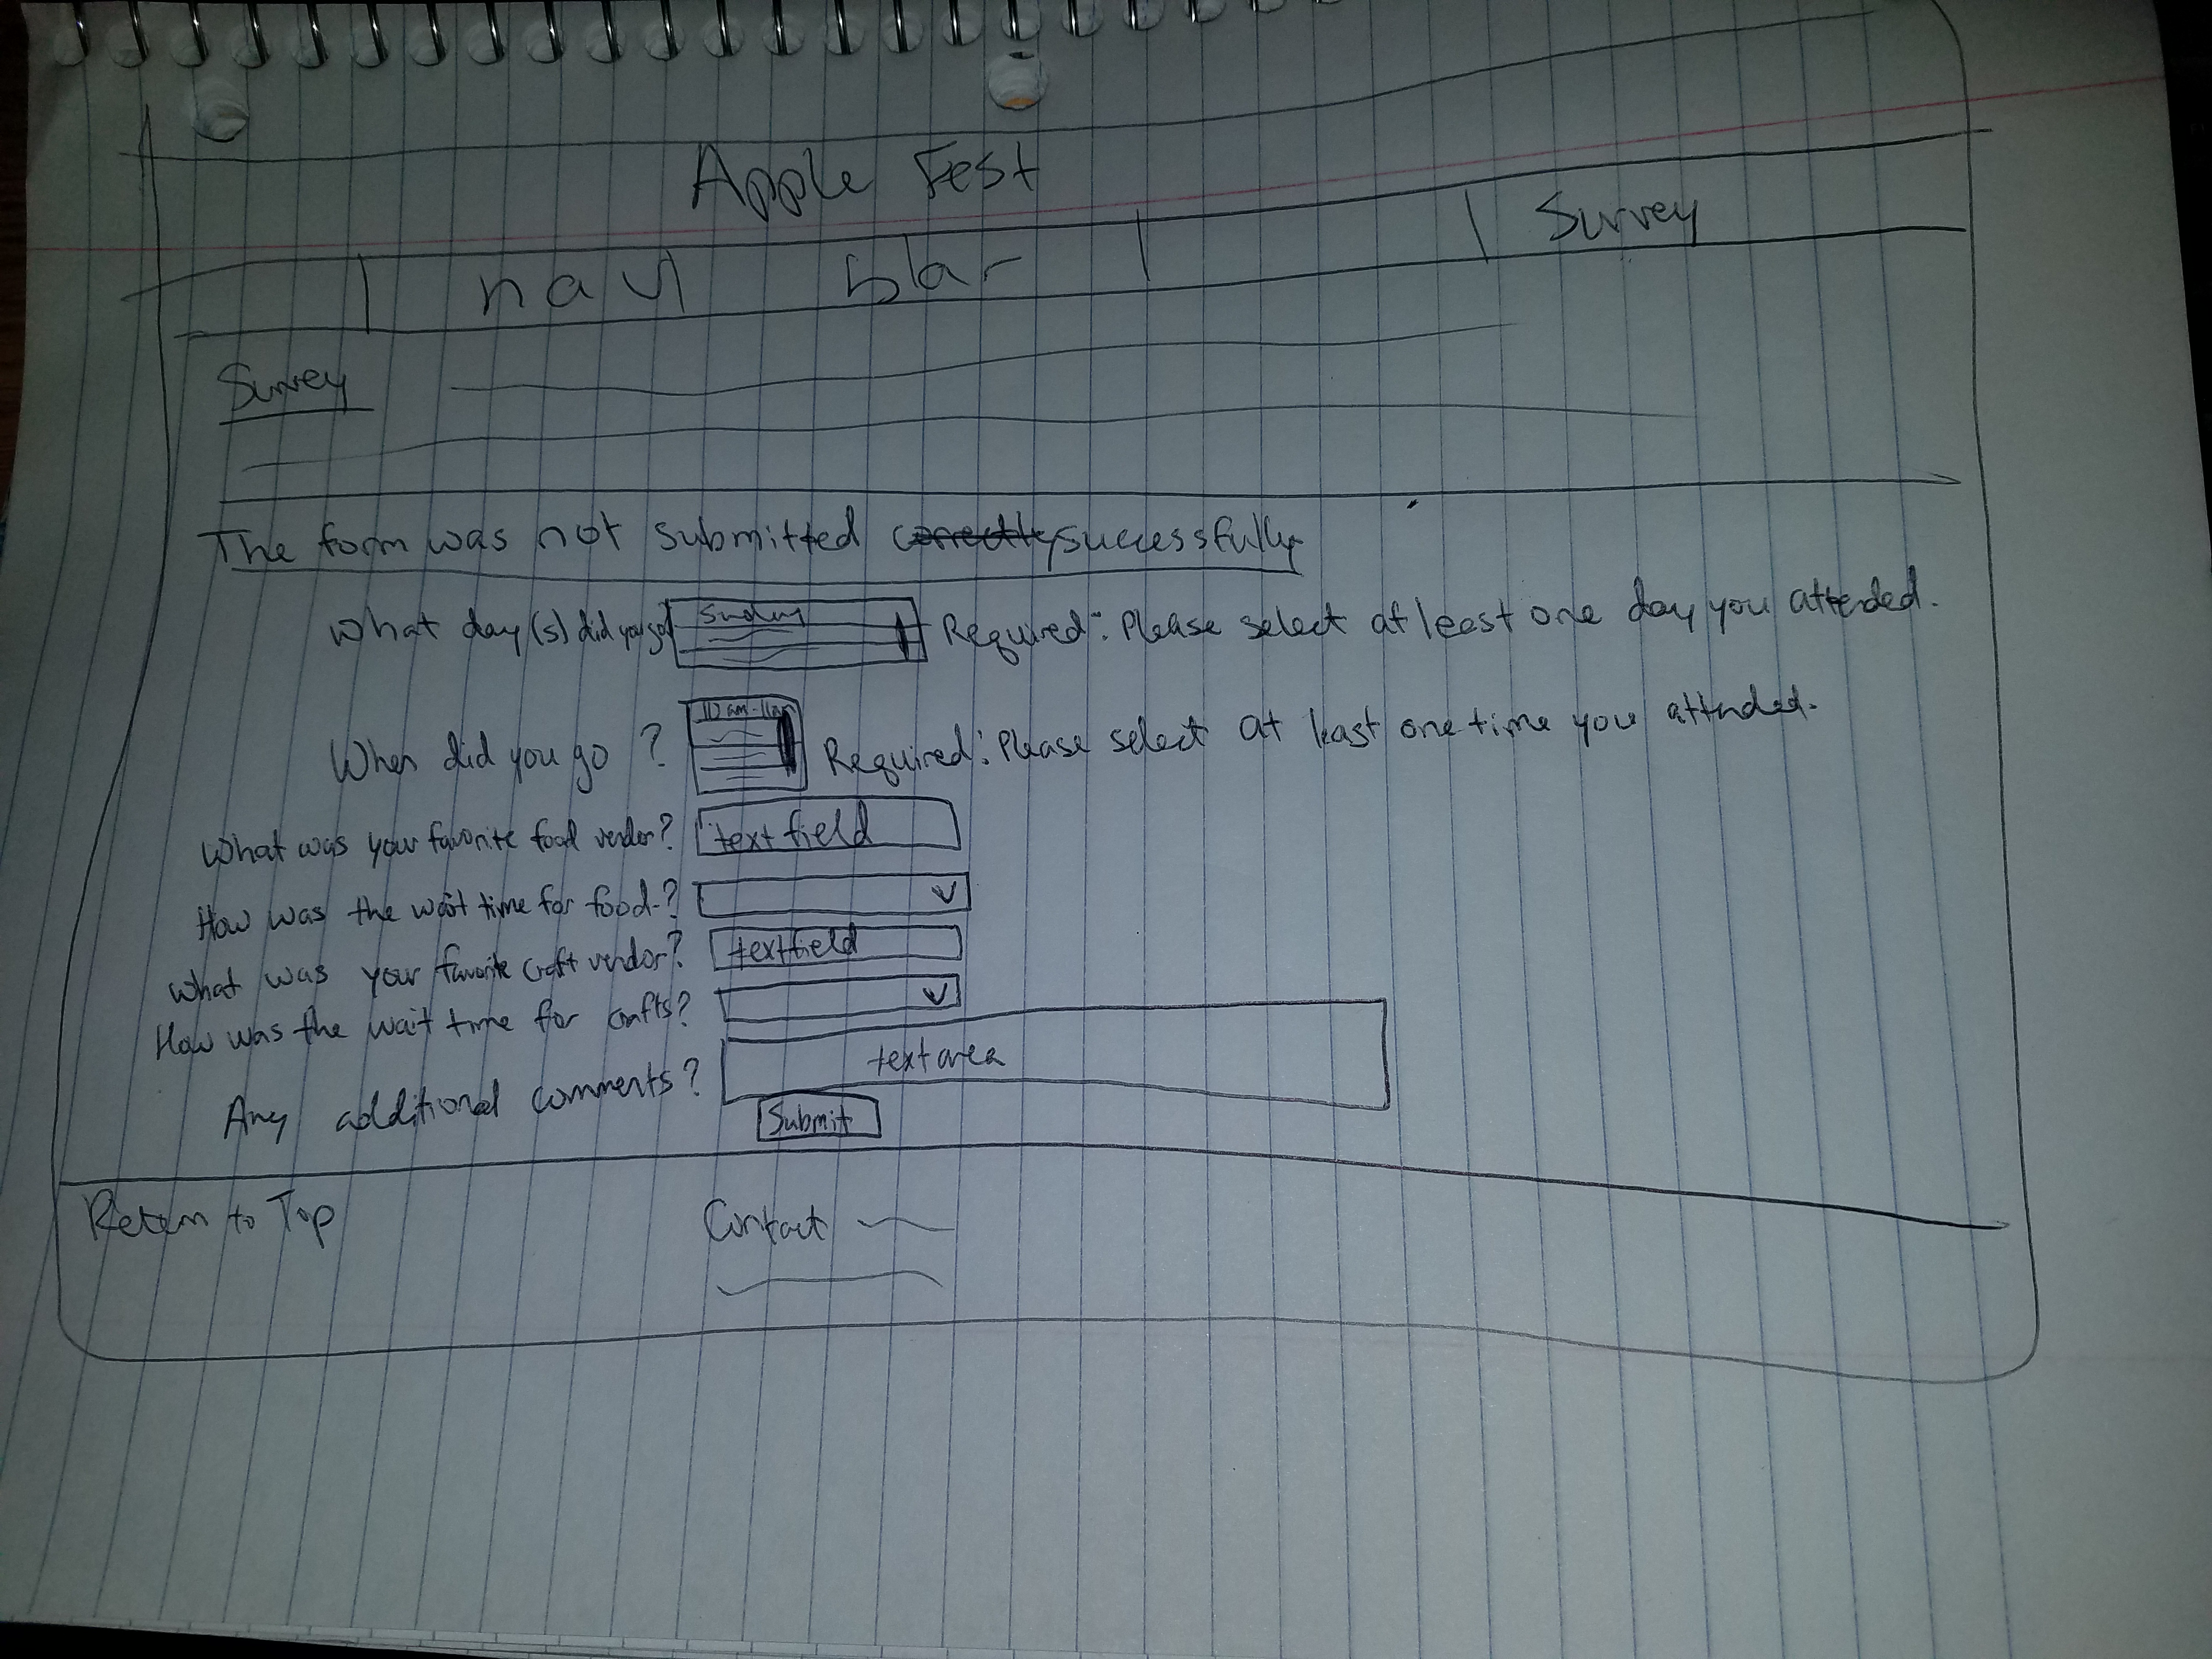 Apple Fest
nav bar Survey
Survey
The form was not submitted correctly successfully
What day(s) did you go? Sunday Required: Please select at least one day you attended.
When did you go? 10am-11am Required: Please select at least one time you attended.
What was your favorite food vendor? text field
How was the wait time for food? v
What was your favorite craft vendor? text field
How was the wait time for crafts? v
Any additional comments? text area
Submit
Return to Top Contact